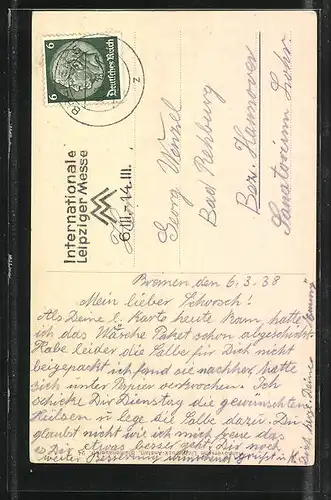 6
Deutsches Reich
Internationale
Leipziger Messe
6.III.-14.III.
Georg Wenzel
Bad Rehburg
Bez. Hannover
Sanatorium Lohr.
Bremen den 6.3.38
Mein lieber Schorsch!
Als Deine l. Karte heute kam, hatte
ich das Wäsche Paket schon abgeschickt.
Habe leider die Salbe für Dich nicht
beigepackt ich fand sie nachher, hatte
sich unter Papier verkrochen. Ich
schicke Dir Dienstag die gewünschten
Hülsen u lege die Salbe dazu. Du
glaubst nicht wie ich mich freue das
es Dir etwas besser geht. Dir noch
weiter Besserung wünschend grüßt u. k.
Dich herzl. Deine Mama